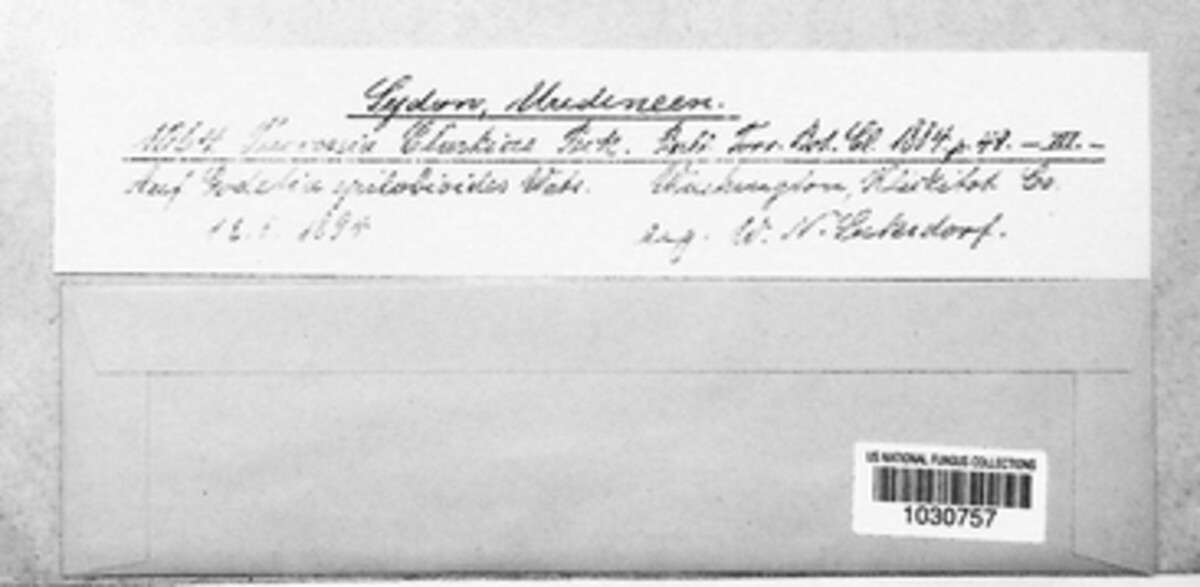 Sydow, Uredineen.
1064 Puccinia Clarkiae Peck. Bull. Torr. Bot. Cl. 1884 p. 49. — III. —
Auf Godetia epilobioides Wats. Washington, Klickitat Co.
1894
leg. W. N. Suksdorf.
US NATIONAL FUNGUS COLLECTIONS
1030757